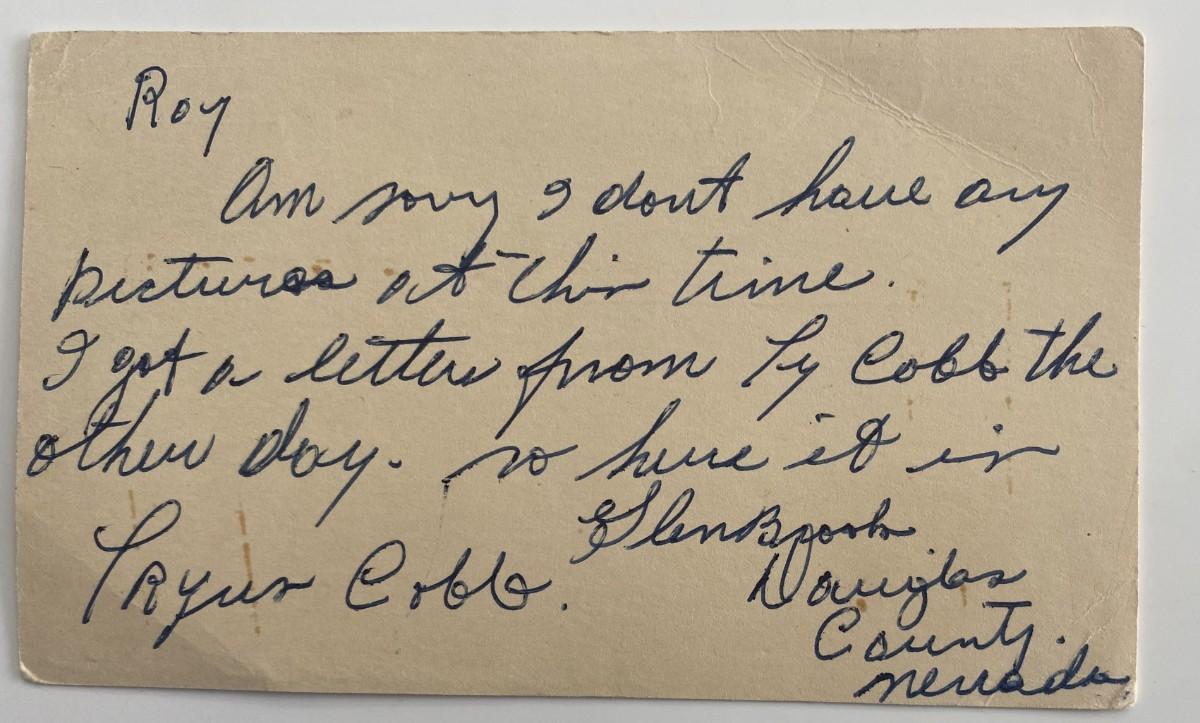 Roy
Am sorry I dont have any
pictures at this time.
I got a letter from Ty Cobb the
other day. so here it is
Tryus Cobb.
GlenBrook
Douglas
County.
Nevada